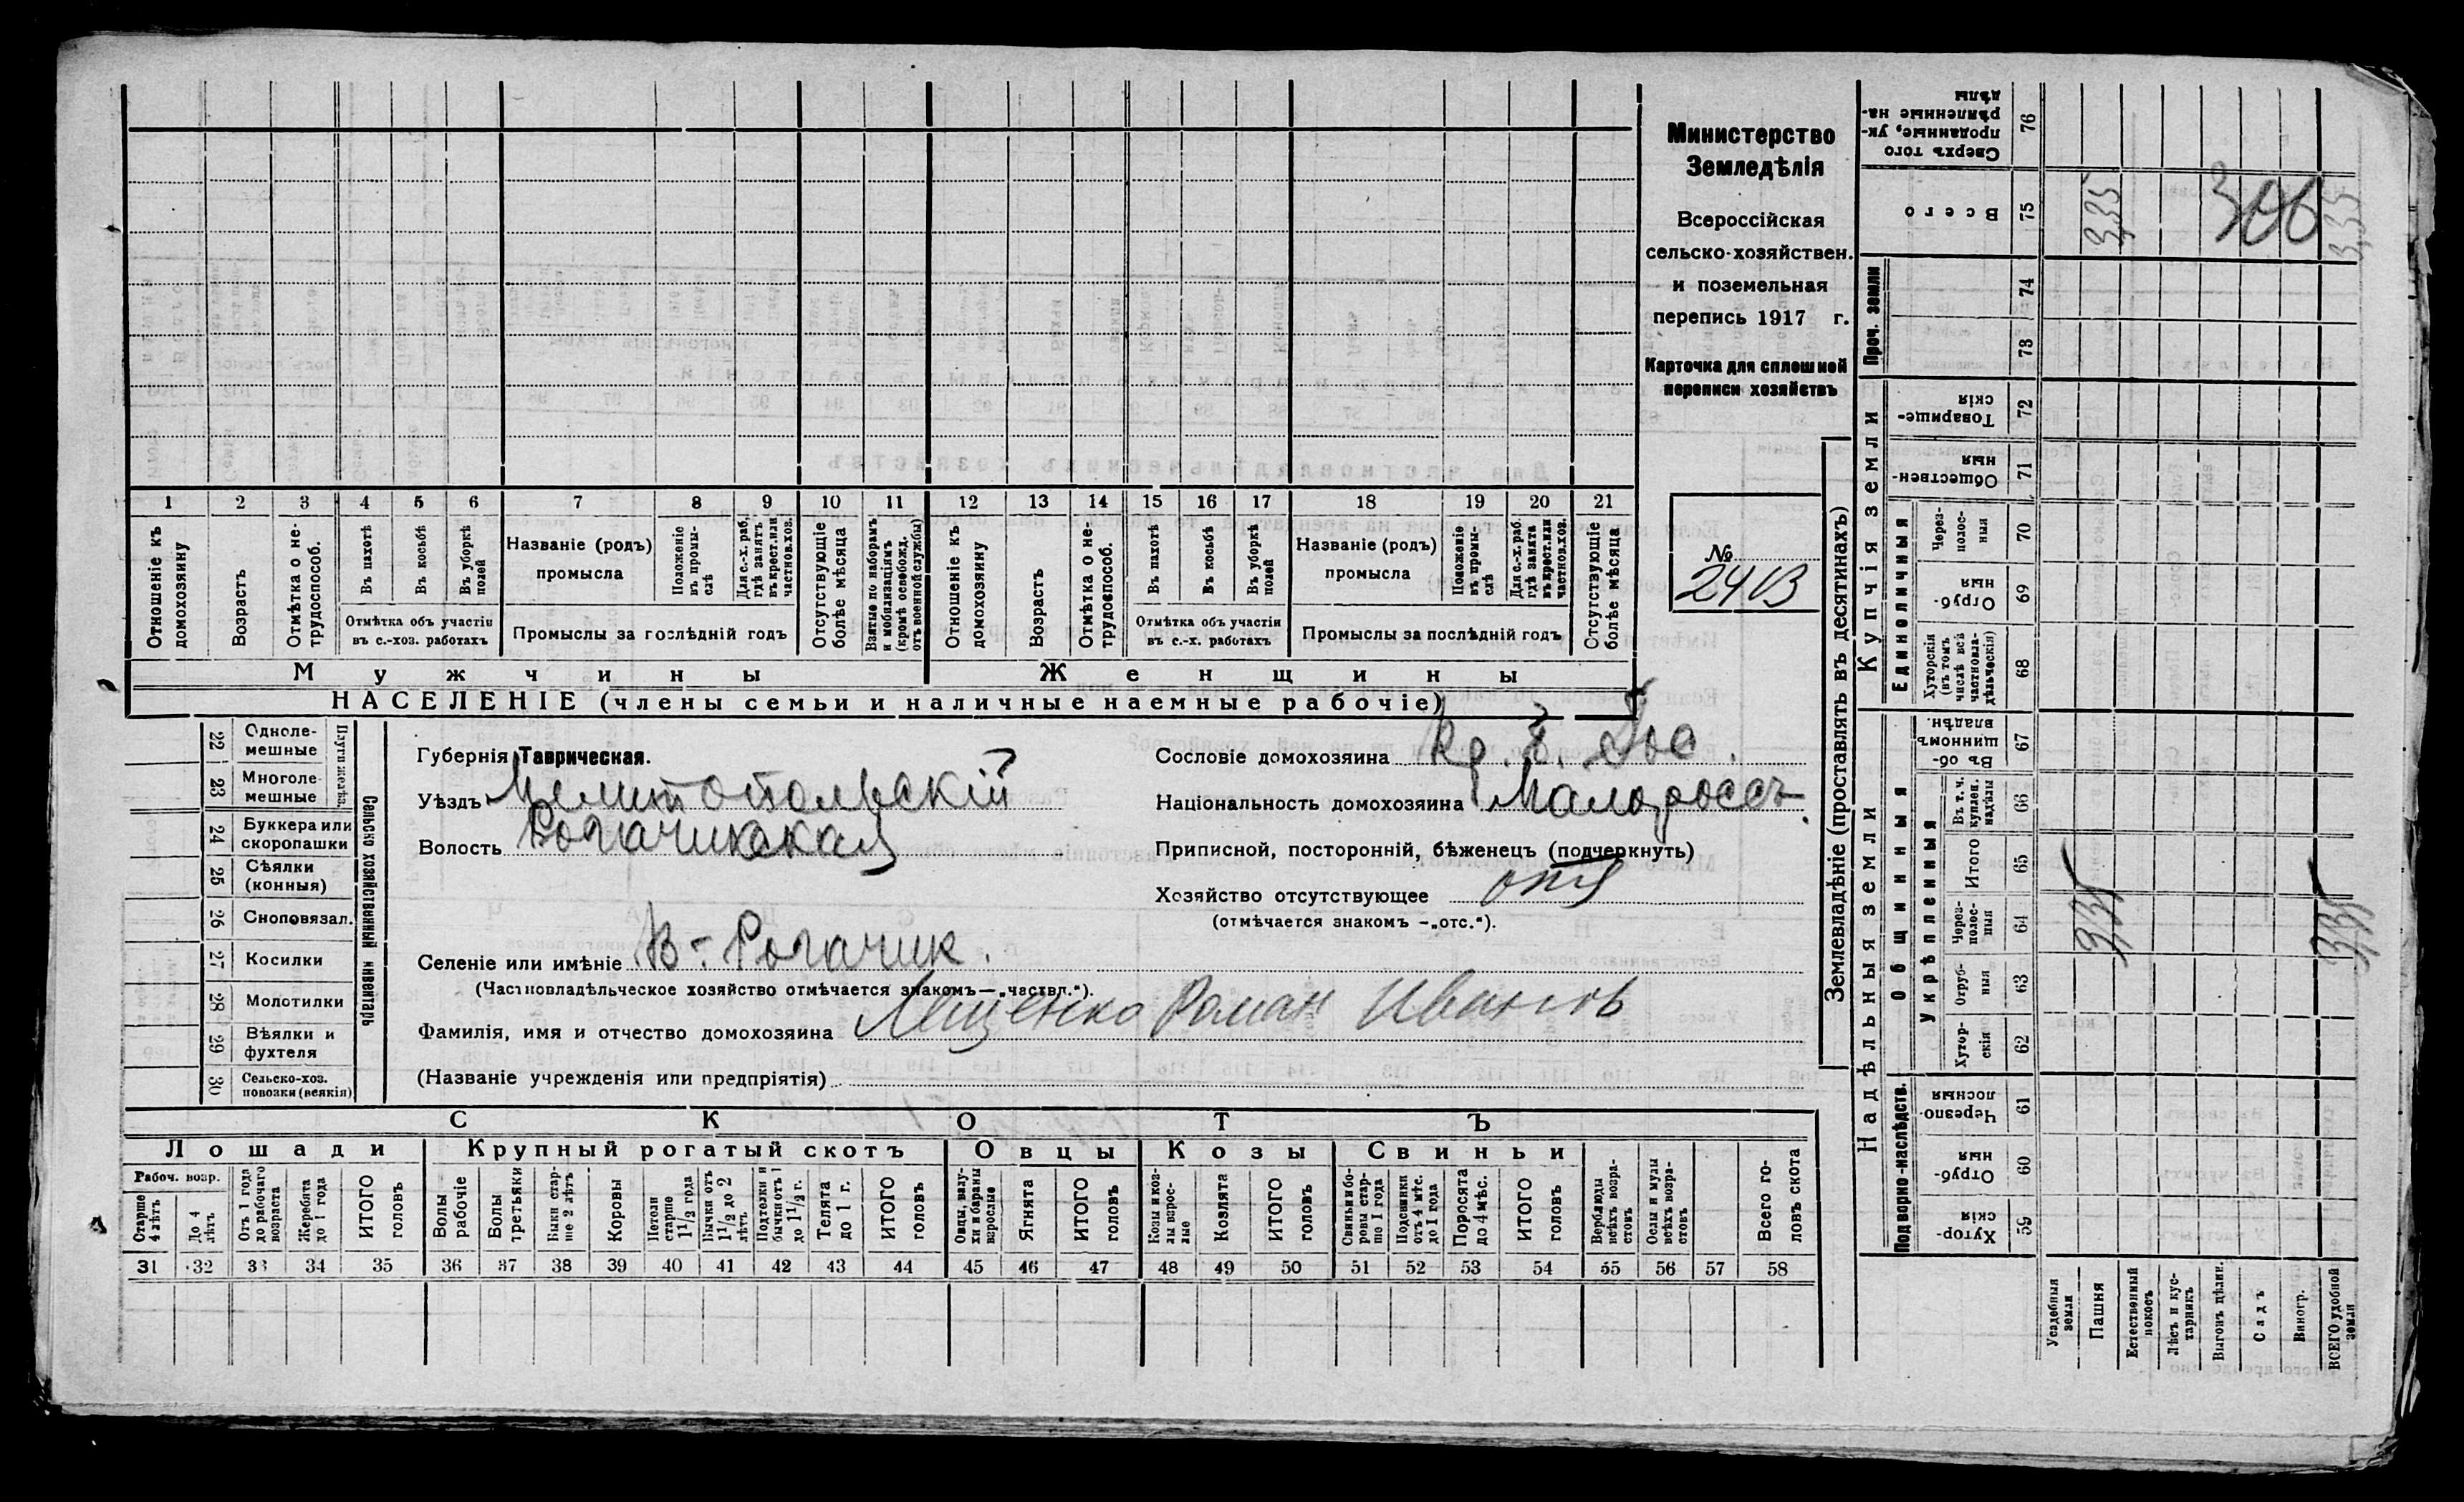 1 2 3 4 5 6 7 8 9 10 11 12 13 14 15 16 17 18 19 20 21
Отношеніе къ домохозяину
Возрастъ
Отмѣтка о не-
трудоспособ.
Въ пахотѣ
Въ косьбѣ
Въ уборкѣ
полей
Отмѣтка объ участіи
въ с.-хоз. работахъ
Названіе (родъ)
промысла
Положеніе
въ промы-
слѣ
Для с.-х. раб.
гдѣ занятъ
въ крест. или
частнов. хоз.
Промыслы за послѣдній годъ
Отсутствующіе
болѣе мѣсяца
Взятые по наборамъ
и мобилизаціямъ
(кромѣ освобожд.
отъ военной службы)
Отношеніе къ
домохозяину
Возрастъ
Отмѣтка о не-
трудоспособ.
Въ пахотѣ
Въ косьбѣ
Въ уборкѣ
полей
Отмѣтка объ участіи
въ с.-х. работахъ
Названіе (родъ)
промысла
Положеніе
въ промы-
слѣ
Для с.-х. раб.
гдѣ занята
въ крест. или
частнов. хоз.
Промыслы за послѣдній годъ
Отсутствующіе
болѣе мѣсяца
Мужчины
Женщины
НАСЕЛЕНІЕ (члены семьи и наличные наемные рабочіе)
Министерство
Земледѣлія
Всероссійская
сельско-хозяйствен.
и поземельная
перепись 1917 г.
Карточка для сплошной
переписи хозяйствъ
№
Сельско хозяйственный инвентарь
Плуги желѣз.
22 Одноле-
мешные
23 Многоле-
мешные
24 Буккера или
скоропашки
25 Сѣялки
(конныя)
26 Сноповязал.
27 Косилки
28 Молотилки
29 Вѣялки и
фухтеля
30 Сельско-хоз.
повозки (всякія)
Губернія Таврическая.
Уѣздъ Мелитопольскій
Волость Рогачикская
Селеніе или имѣніе В.-Рогачик.
(Частновладѣльческое хозяйство отмѣчается знакомъ—„частвл.“).
Фамилія, имя и отчество домохозяина Лещенко Роман Иванов
(Названіе учрежденія или предпріятія)
Сословіе домохозяина
Національность домохозяина Малороссъ
Приписной, посторонній, бѣженецъ (подчеркнуть)
Хозяйство отсутствующее
(отмѣчается знакомъ —„отс.“).
СКОТЪ
Лошади
Крупный рогатый скотъ
Овцы
Козы
Свиньи
Рабоч. возр.
Старше
4 лѣтъ
До 4
лѣтъ
Отъ 1 года
до рабочаго
возраста
Жеребята
до 1 года
ИТОГО
головъ
Волы
рабочіе
Волы
третьяки
Быки стар-
ше 2 лѣтъ
Коровы
Нетели
старше
1 1/2 года
Бычки отъ
1 1/2 до 2
лѣтъ
Подтелки и
бычки отъ 1
до 1 1/2 г.
Телята
до 1 г.
ИТОГО
головъ
Овцы, валу-
хи и бараны
взрослые
Ягнята
ИТОГО
головъ
Козы и коз-
лы взрос-
лые
Козлята
ИТОГО
головъ
Свиньи и бо-
ровы стар-
ше 1 года
Подсвинки
отъ 4 мѣс.
до 1 года
Поросята
до 4 мѣс.
ИТОГО
головъ
Верблюды
всѣхъ возра-
стовъ
Ослы и мулы
всѣхъ возра-
стовъ
Всего го-
ловъ скота
31 32 33 34 35 36 37 38 39 40 41 42 43 44 45 46 47 48 49 50 51 52 53 54 55 56 57 58
Землевладѣніе (проставлять въ десятинахъ)
Сверхъ того
проданные, ук-
рѣпленные на-
дѣлы
76
Всего
75
3,35
306
3,35
Купчія земли
Проч. земли
74
73
Товарище-
скія
72
Обществен-
ныя
71
Единоличныя
Через-
полос-
ныя
70
Отруб-
ныя
69
Хуторскія
(въ томъ
числѣ всѣ
частновла-
дѣльческія)
68
Надѣльныя земли
Общинныя
Въ об-
щинномъ
владѣн.
67
Укрѣпленныя
Въ т. ч.
куплен.
надѣлы
66
Итого
65
Через-
полос-
ныя
64
3,35
3,35
Отруб-
ныя
63
Хутор-
скія
62
Подворно-наслѣдств.
Черезпо-
лосныя
61
Отруб-
ныя
60
Хутор-
скія
59
Усадебныя
земли
Пашня
Естественный
покосъ
Лѣсъ и кус-
тарникъ
Выгонъ цѣлин.
Садъ
Виногр.
ВСЕГО удобной
земли